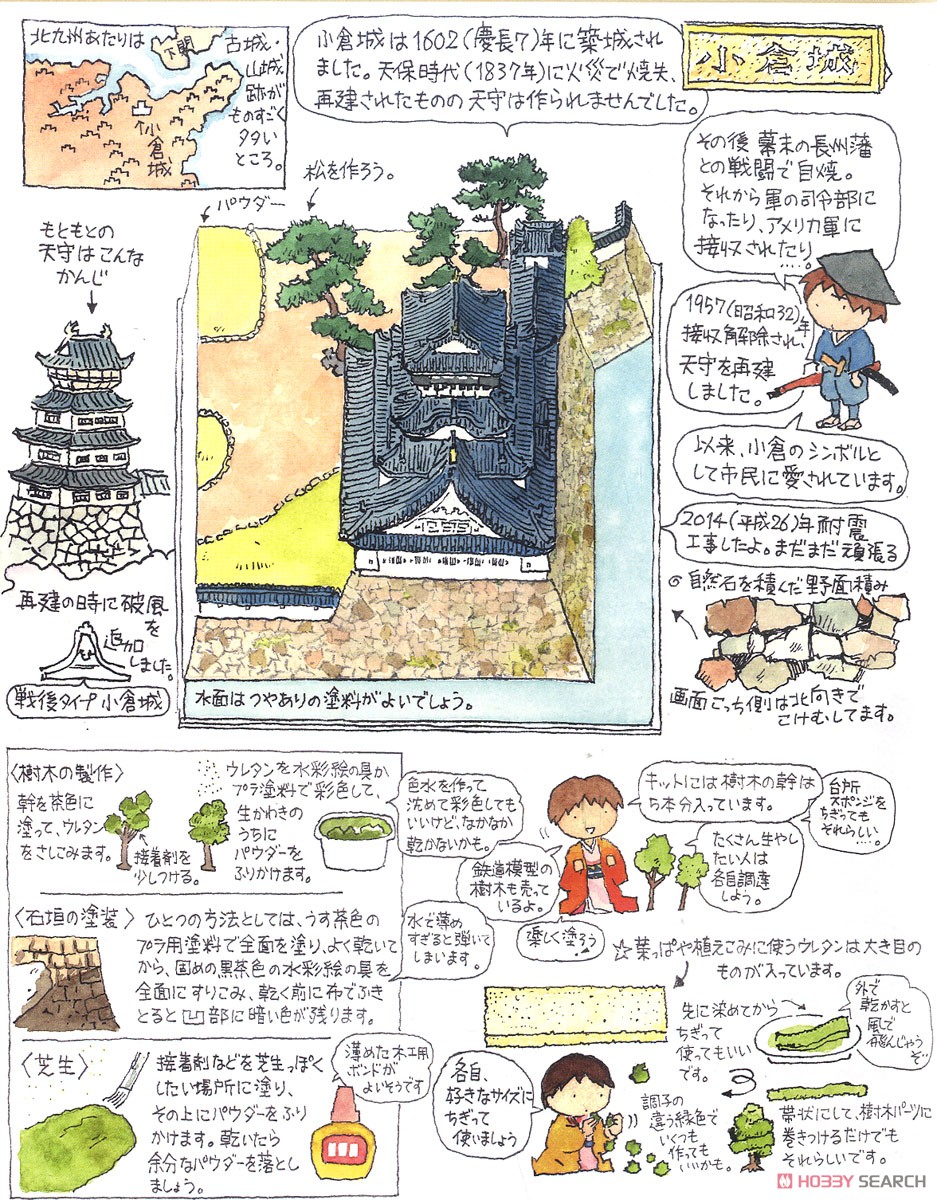 北九州あたりは
下関
古城・
山城
跡が
ものすごく
多い
ところ。
小倉城
小倉城は1602(慶長7)年に築城され
ました。天保時代(1837年)に火災で焼失、
再建されたものの天守は作られませんでした。
小倉城
その後 幕末の長州藩
との戦闘で自焼。
それから軍の司令部に
なったり、アメリカ軍に
接収されたり
....
1957(昭和32)年
接収解除され、
天守を再建
しました。
以来、小倉のシンボルと
して市民に愛されています。
2014(平成26)年耐震
工事したよ。まだまだ頑張る
松を作ろう。
パウダー
もともとの
天守はこんな
かんじ
再建の時に破風
を
追加
しました。
戦後タイプ小倉城
水面はつやありの塗料がよいでしょう。
自然石を積んだ野面積み
画面こっち側は北向きで
こけむしてます。
〈樹木の製作〉
幹を茶色に
塗って、ウレタン
をさしこみます。
接着剤を
少しつける。
ウレタンを水彩絵の具か
プラ塗料で彩色して、
生かわきの
うちに
パウダーを
ふりかけます。
色水を作って
沈めて彩色しても
いいけど、なかなか
乾かないかも。
キットには樹木の幹は
5本分入っています。
台所
スポンジを
ちぎっても
それらしい
....。
たくさん生やし
たい人は
各自調達
しよう。
鉄道模型の
樹木も売って
いるよ。
楽しく塗ろう
〈石垣の塗装〉
ひとつの方法としては、うす茶色の
プラ用塗料で全面を塗り、よく乾いて
から、固めの黒茶色の水彩絵の具を
全面にすりこみ、乾く前に布でふき
とると凹部に暗い色が残ります。
水で薄め
すぎると弾いて
しまいます。
☆葉っぱや植えこみに使うウレタンは大き目の
ものが入っています。
先に染めてから
ちぎって
使ってもいい
です。
外で
乾かすと
風で
飛んじゃう
ぞ
〈芝生〉
接着剤などを芝生っぽく
したい場所に塗り、
その上にパウダーをふり
かけます。乾いたら
余分なパウダーを落とし
ましょう。
薄めた木工用
ボンドが
よいそうです
各自、
好きなサイズに
ちぎって
使いましょう
調子の
違う緑色で
いくつも
作っても
いいかも。
帯状にして、樹木パーツに
巻きつけるだけでも
それらしいです。
HOBBY SEARCH